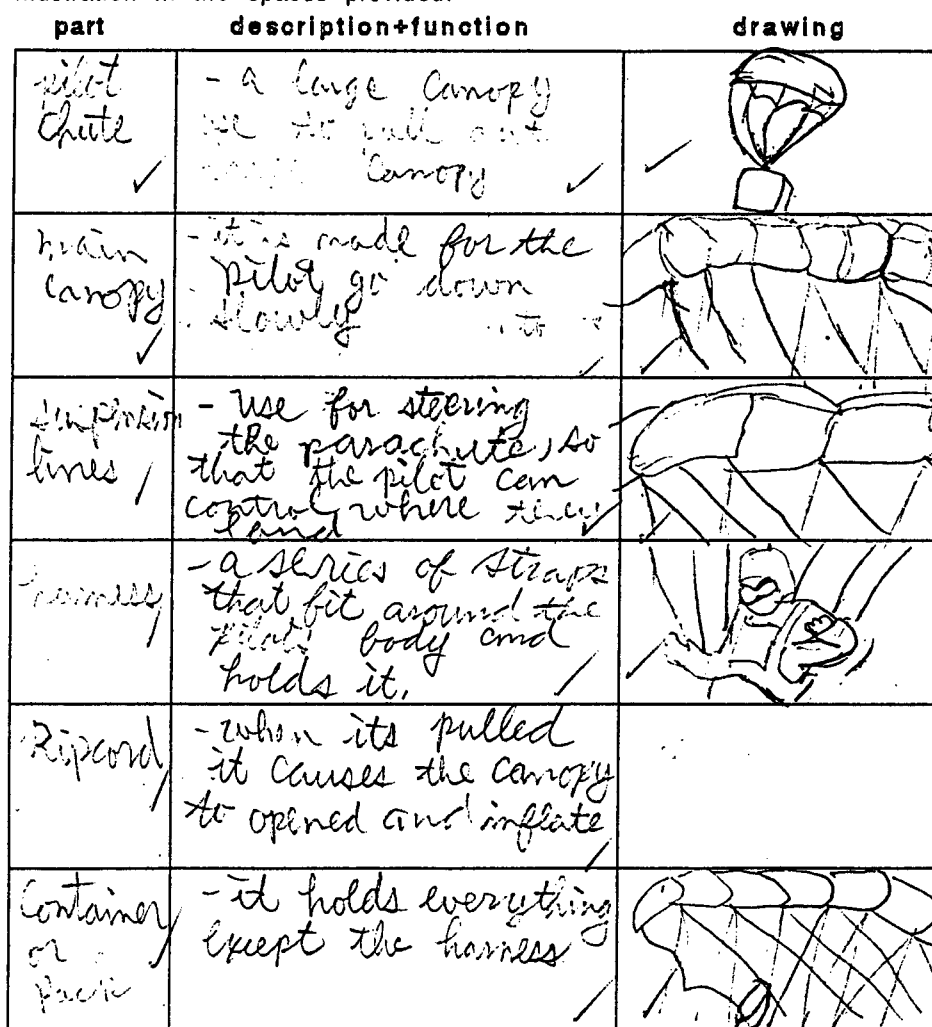 part description+function drawing
pilot
chute
- a large canopy
use to pull out
canopy
main
canopy
- it is made for the
pilot go down
slowly to
suspension
lines
- use for steering
the parachute, so
that the pilot can
control where they
land
harness
- a series of straps
that fit around the
pilots body and
holds it.
Ripcord
- when its pulled
it causes the canopy
to opened and inflate
Container
or
pack
- it holds everything
except the harness